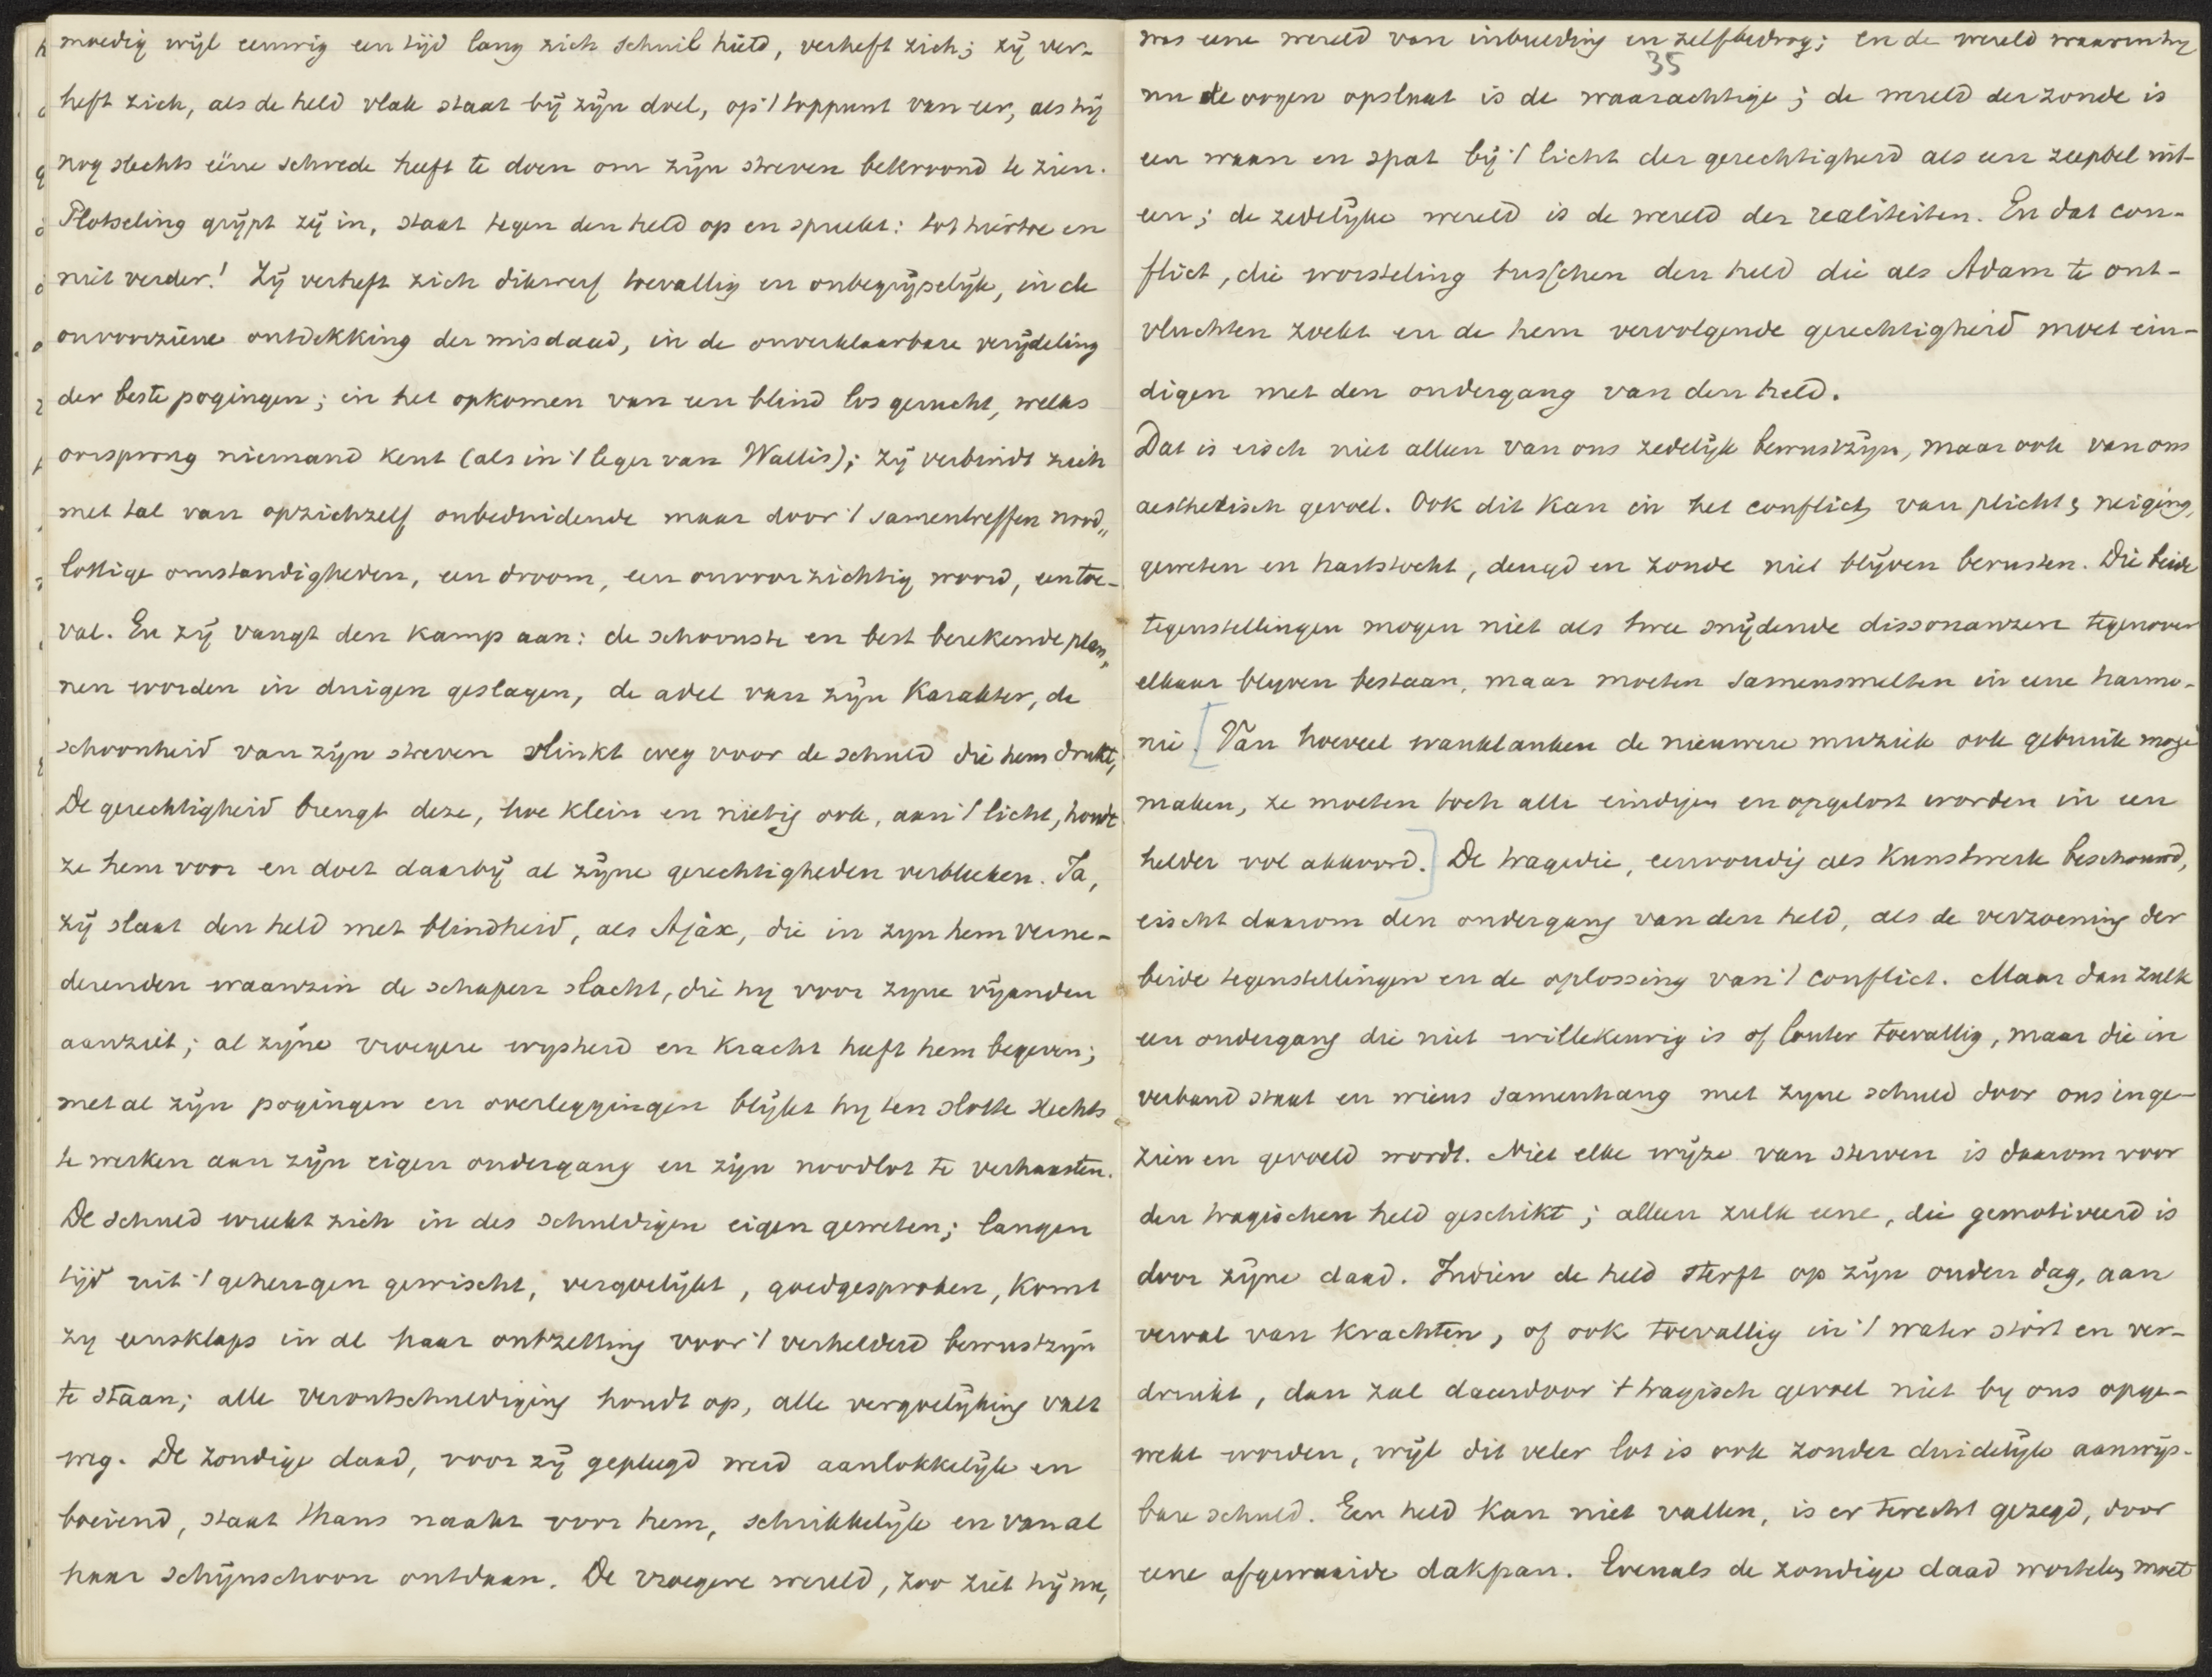 moedig wijl eeuwig een tijd lang zich schuil hield, verheft zich; zij ver-
heft zich, als de held vlak staat bij zijn doel, op 't toppunt van eer, als hij
nog slechts eene schrede heeft te doen om zijn streven bekroond te zien.
Plotseling grijpt zij in, staat tegen den held op en spreekt: tot hiertoe en
niet verder! Zij verheft zich dikwerf toevallig en onbegrijpelijk, in de
onvoorziene ontdekking der misdaad, in de onverklaarbare verijdeling
der beste pogingen; in het opkomen van een blind los gerucht, welks
oorsprong niemand kent (als in 't leger van Wallis); zij verbindt zich
met tal van opzichzelf onbeduidende maar door 't samentreffen nood„
lottige omstandigheden, een droom, een onvoorzichtig woord, een toe-
val. En zij vangt den kamp aan: de schoonste en best berekende plan„
nen worden in duigen geslagen, de adel van zijn karakter, de
schoonheid van zijn streven slinkt weg voor de schuld die hem drukt,
De gerechtigheid brengt deze, hoe klein en nietig ook, aan 't licht, houdt
ze hem voor en doet daarbij al zijne gerechtigheden verbleeken. Ja,
zij slaat den held met blindheid, als Ajax, die in zijn hem verne-
derenden waanzin de schapen slacht, die hij voor zijne vijanden
aanziet; al zijne vroegere wijsheid en kracht heeft hem begeven;
met al zijn pogingen en overleggingen blijkt hij ten slotte slechts
te werken aan zijn eigen ondergang en zijn noodlot te verhaasten.
De schuld wreekt zich in des schuldigen eigen geweten; langen
tijd uit 't geheugen gewischt, vergoelijkt, goedgesproken, komt
zij eensklaps in al haar ontzetting voor 't verhelderd bewustzijn
te staan; alle verontschuldiging houdt op, alle vergoelijking valt
weg. De zondige daad, voor zij gepleegd werd aanlokkelijk en
boeiend, staat thans naakt voor hem, schrikkelijk en van al
haar schijnschoon ontdaan. De vroegere wereld, zoo ziet hij nu,
35
was eene wereld van inbeelding en zelfbedrog; en de wereld waarin hij
nu de oogen opslaat is de waarachtige; de wereld der zonde is
een waan en spat bij 't licht der gerechtigheid als een zeepbel uit-
een; de zedelijke wereld is de wereld der realiteiten. En dat con-
flict, die worsteling tusschen den held die als Adam te ont-
vluchten zoekt en de hem vervolgende gerechtigheid moet ein-
digen met den ondergang van den held.
Dat is eisch niet alleen van ons zedelijk bewustzijn, maar ook van ons
aesthetisch gevoel. Ook dit kan in het conflict van plicht & neiging,
geweten en hartstocht, deugd en zonde niet blijven berusten. Die beide
tegenstellingen mogen niet als twee snijdende dissonanzen tegenover
elkaar blijven bestaan, maar moeten samensmelten in eene harmo-
nie. [Van hoeveel wanklanken de nieuwere muziek ook gebruik moge
maken, ze moeten toch alle eindigen en opgelost worden in een
helder vol akkoord.] De tragedie, eenvoudig als kunstwerk beschouwd,
eischt daarom den ondergang van den held, als de verzoening der
beide tegenstellingen en de oplossing van 't conflict. Maar dan zulk
een ondergang die niet willekeurig is of louter toevallig, maar die in
verband staat en wiens samenhang met zijne schuld door ons inge-
zien en gevoeld wordt. Niet elke wijze van sterven is daarom voor
den tragischen held geschikt; alleen zulk eene, die gemotiveerd is
door zijne daad. Indien de held sterft op zijn ouden dag, aan
verval van krachten, of ook toevallig in 't water stort en ver-
drinkt, dan zal daardoor 't tragisch gevoel niet bij ons opge-
wekt worden, wijl dit veler lot is ook zonder duidelijk aanwijs-
bare schuld. Een held kan niet vallen, is er terecht gezegd, door
eene afgewaaide dakpan. Evenals de zondige daad wortelen moet